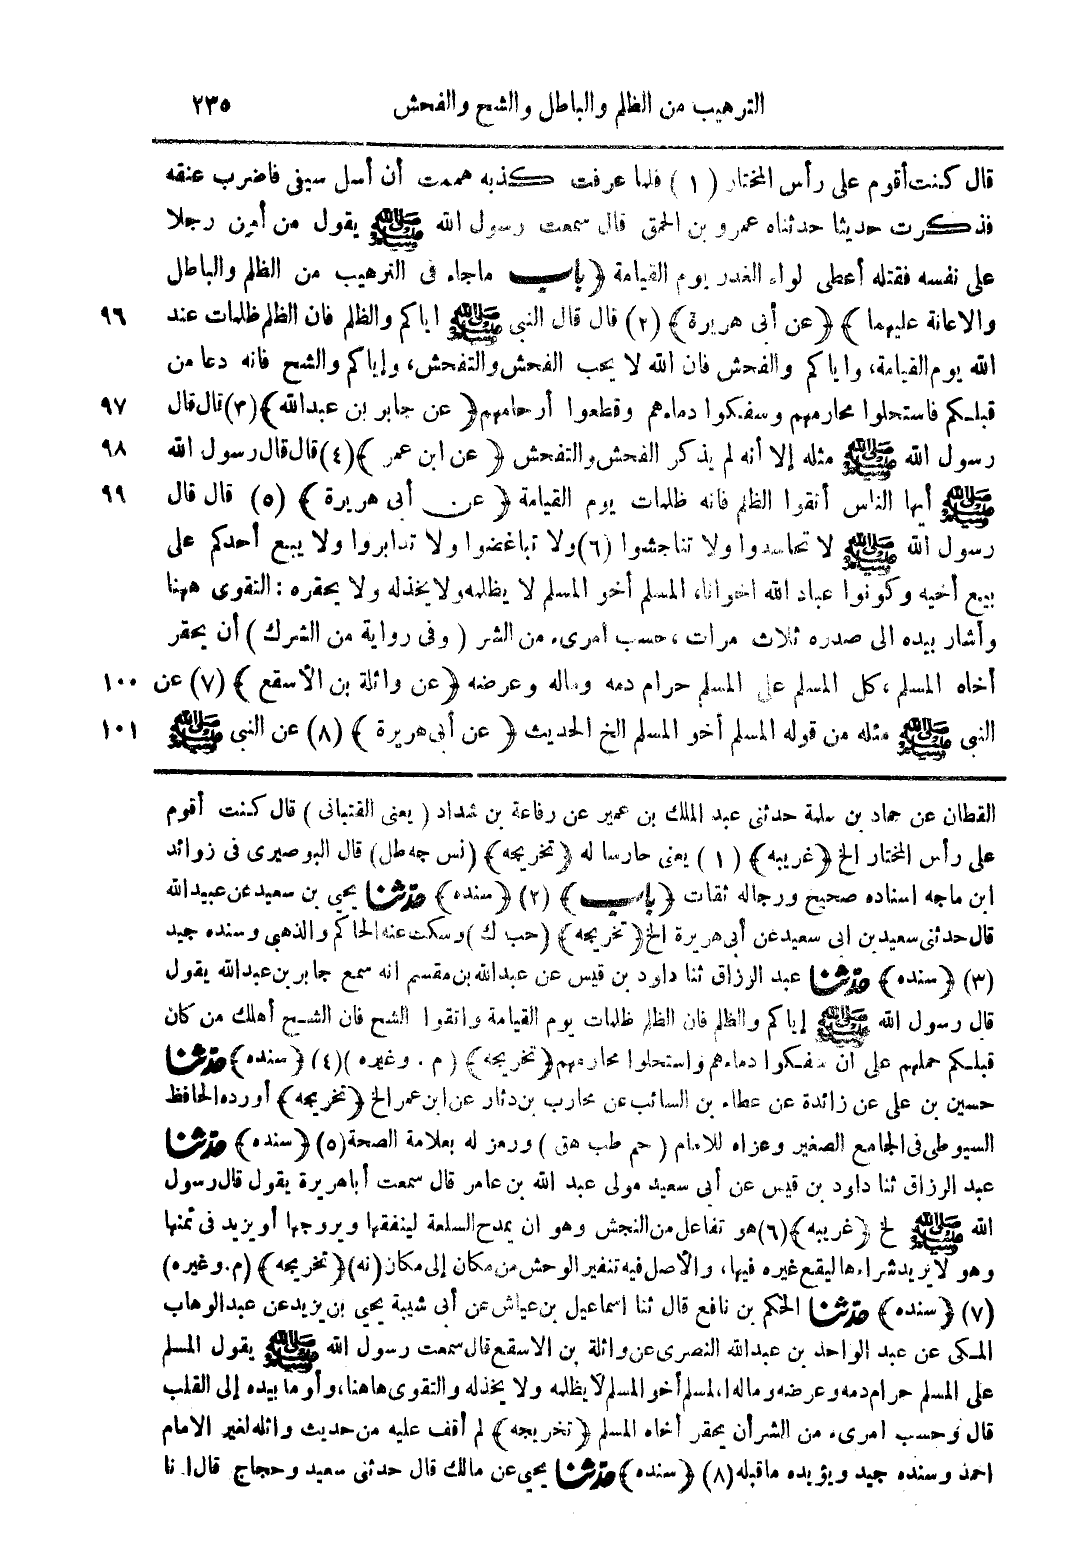 الترهيب من الظلم والباطل والشح والفحش ٢٣٥
قال كنت أقوم على رأس المختار (١) فلما عرفت كذبه هممت أن أسل سيفى فاضرب عنقه
فذكرت حديثا حدثناه عمرو بن الحمق قال سمعت رسول الله ﷺ يقول من أمن رجلا
على نفسه فقتله أعطى لواء الغدر يوم القيامة ﴿باب ماجاء فى الترهيب من الظلم والباطل
والاعانة عليهما﴾ ﴿عن أبى هريرة﴾ (٢) قال قال النبى ﷺ اياكم والظلم فان الظلم ظلمات عند ٩٦
الله يوم القيامة، واياكم والفحش فان الله لا يحب الفحش والتفحش، وإياكم والشح فانه دعا من
قبلكم فاستحلوا محارمهم وسفكوا دماءهم وقطعوا أرحامهم ﴿عن جابر بن عبدالله﴾ (٣) قال قال ٩٧
رسول الله ﷺ مثله إلا أنه لم يذكر الفحش والتفحش ﴿عن ابن عمر﴾ (٤) قال قال رسول الله ٩٨
ﷺ أيها الناس أتقوا الظلم فانه ظلمات يوم القيامة ﴿عن أبى هريرة﴾ (٥) قال قال ٩٩
رسول الله ﷺ لا تحاسدوا ولا تناجشوا (٦) ولا تباغضوا ولا تدابروا ولا يبع أحدكم على
بيع أخيه وكونوا عباد الله اخوانا، المسلم أخو المسلم لا يظلمه ولا يخذله ولا يحقره: التقوى ههنا
وأشار بيده الى صدره ثلاث مرات، حسب أمرىء من الشر (وفى رواية من الشرك) أن يحقر
أخاه المسلم، كل المسلم على المسلم حرام دمه وماله وعرضه ﴿عن واثلة بن الأسقع﴾ (٧) عن ١٠٠
النبى ﷺ مثله من قوله المسلم أخو المسلم الخ الحديث ﴿عن أبى هريرة﴾ (٨) عن النبى ﷺ ١٠١
القطان عن حماد بن سلمة حدثنى عبد الملك بن عمير عن رفاعة بن شداد (يعنى الفتيانى) قال كنت أقوم
على رأس المختار الخ ﴿غريبه﴾ (١) يعنى حارسا له ﴿تخريجه﴾ (نس جه طل) قال البوصيرى فى زوائد
ابن ماجه اسناده صحيح ورجاله ثقات ﴿باب﴾ (٢) ﴿سنده﴾ حدثنا يحي بن سعيد عن عبيد الله
قال حدثنى سعيد بن ابى سعيد عن أبى هريرة الخ ﴿تخريجه﴾ (حب ك) وسكت عنه الحاكم والذهبى وسنده جيد
(٣) ﴿سنده﴾ حدثنا عبد الرزاق ثنا داود بن قيس عن عبدالله بن مقسم انه سمع جابر بن عبدالله يقول
قال رسول الله ﷺ إياكم والظلم فان الظلم ظلمات يوم القيامة واتقوا الشح فان الشح أهلك من كان
قبلكم حملهم على ان سفكوا دماءهم واستحلوا محارمهم ﴿تخريجه﴾ (م . وغيره) (٤) ﴿سنده﴾ حدثنا
حسين بن على عن زائدة عن عطاء بن السائب عن محارب بن دثار عن ابن عمر الخ ﴿تخريجه﴾ أورده الحافظ
السيوطى فى الجامع الصغير وعزاه للامام (حم طب هق) ورمز له بعلامة الصحة (٥) ﴿سنده﴾ حدثنا
عبد الرزاق ثنا داود بن قيس عن أبى سعيد مولى عبد الله بن عامر قال سمعت أباهريرة يقول قال رسول
الله ﷺ الخ ﴿غريبه﴾ (٦) هو تفاعل من النجش وهو ان يمدح السلعة لينفقها ويروجها أو يزيد فى ثمنها
وهو لا يريد شراءها ليقع غيره فيها، والأصل فيه تنفير الوحش من مكان إلى مكان (نه) ﴿تخريجه﴾ (م. وغيره)
(٧) ﴿سنده﴾ حدثنا الحكم بن نافع قال ثنا اسماعيل بن عياش عن أبى شيبة يحي بن يزيد عن عبد الوهاب
المكى عن عبد الواحد بن عبدالله النصرى عن واثلة بن الاسقع قال سمعت رسول الله ﷺ يقول المسلم
على المسلم حرام دمه وعرضه وماله المسلم أخو المسلم لا يظلمه ولا يخذله والتقوى هاهنا، وأوما بيده إلى القلب
قال وحسب امرىء من الشر أن يحقر أخاه المسلم ﴿تخريجه﴾ لم أقف عليه من حديث واثله لغير الامام
احمد وسنده جيد ويؤيده ماقبله (٨) ﴿سنده﴾ حدثنا يحي عن مالك قال حدثنى سعيد وحجاج قال انا